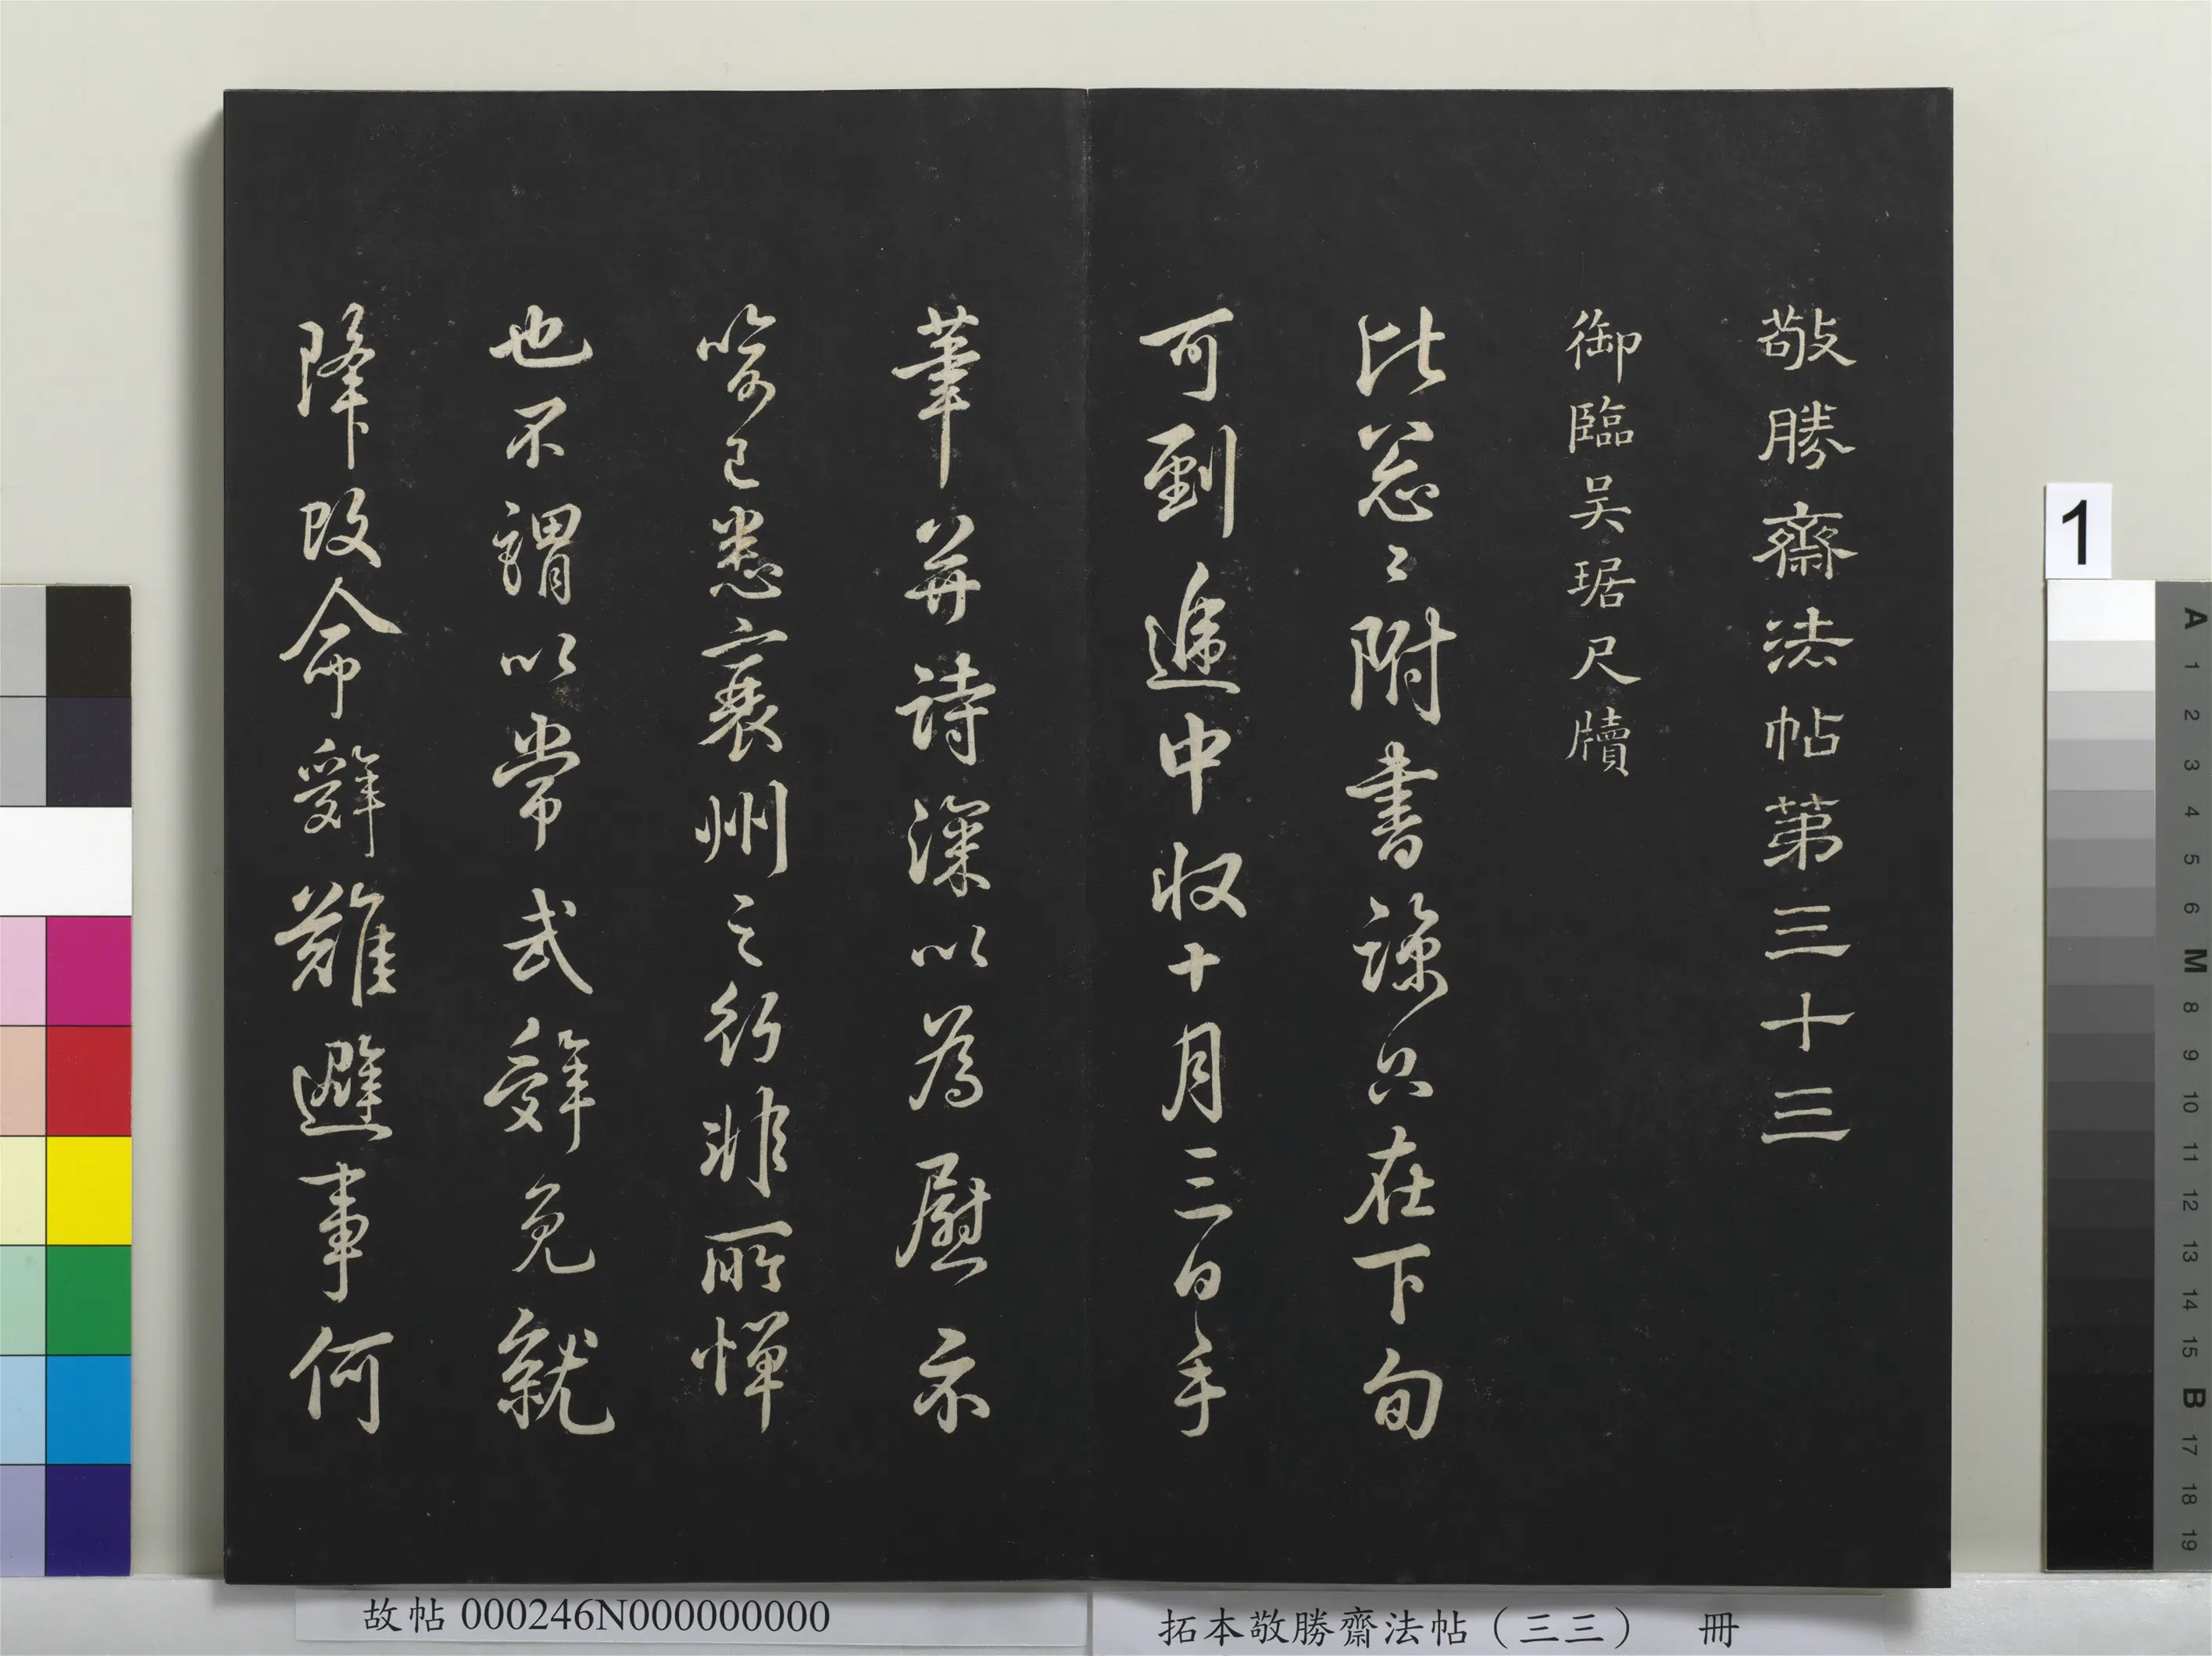 敬勝齋法帖第三十三
御臨吴琚尺牘
比怱〻附書諒只在下旬
可到遞中收十月三日手
筆并詩深以為慰示
喻已悉襄州之行非所憚
也不謂以常式辭免就
降改命辭難避事何
故帖000246N000000000
拓本敬勝齋法帖（三三） 冊
1
A
1
2
3
4
5
6
M
8
9
10
11
12
13
14
15
B
17
18
19